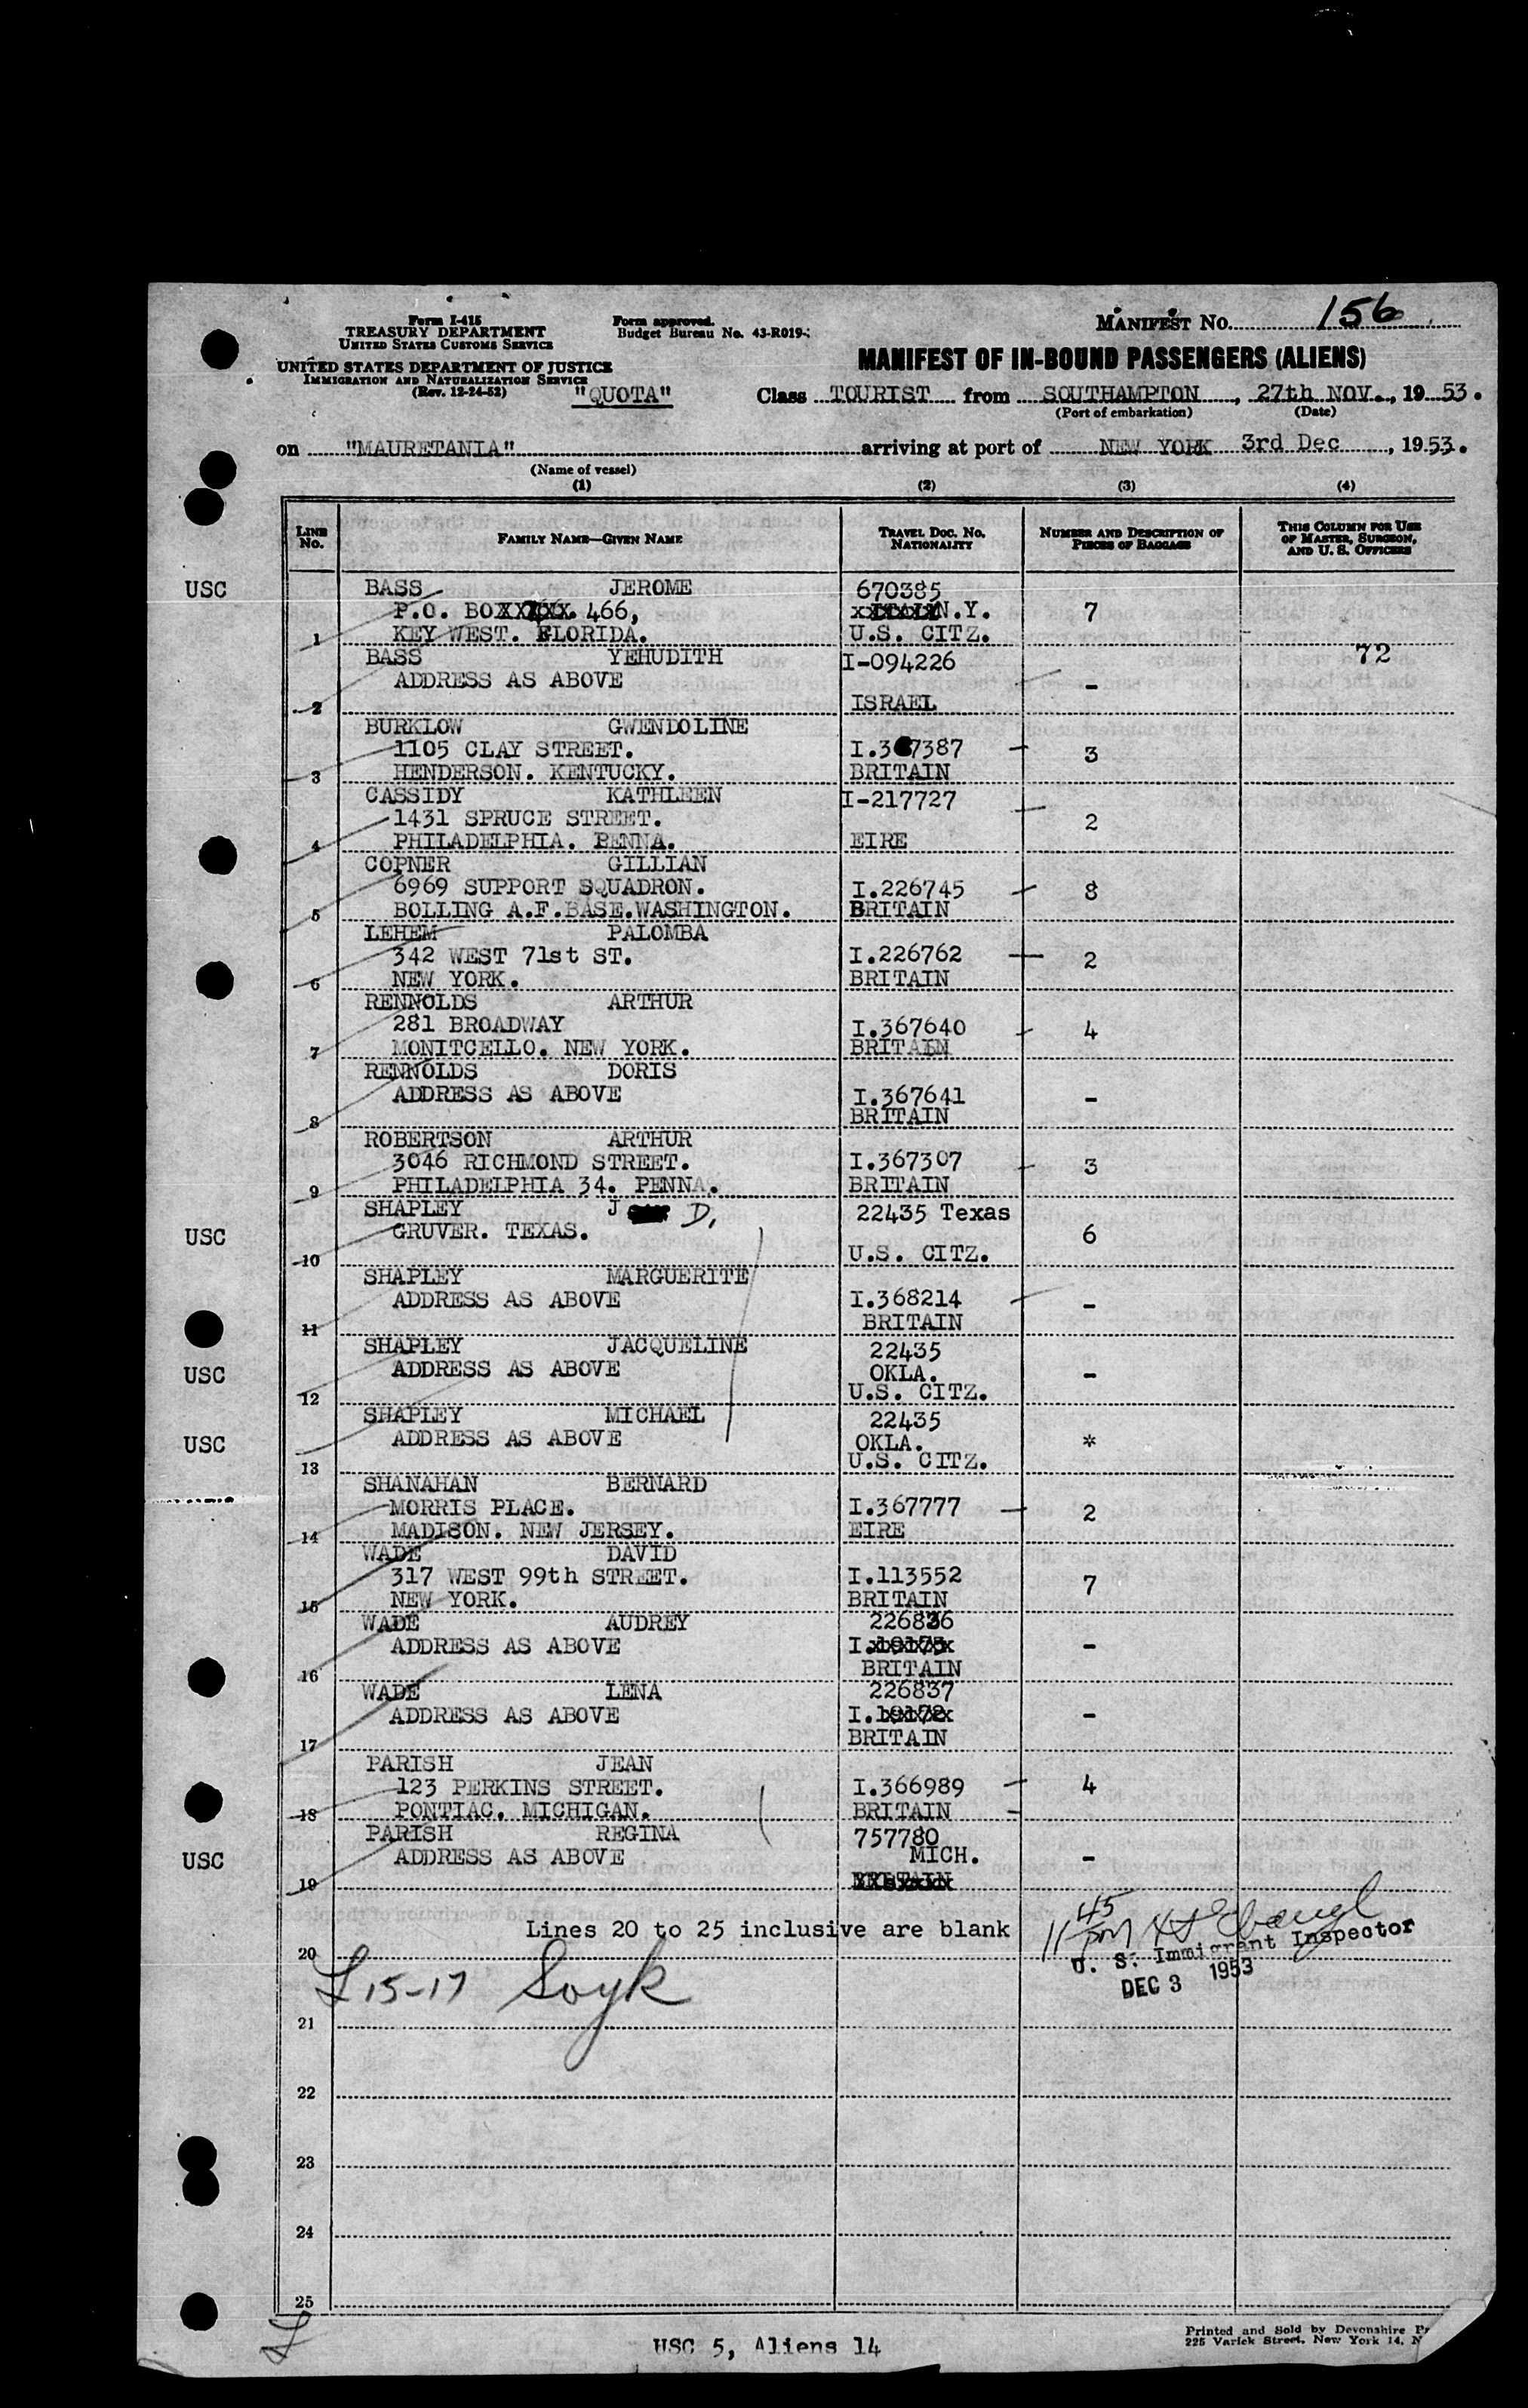 Form I-415
TREASURY DEPARTMENT
UNITED STATES CUSTOMS SERVICE
UNITED STATES DEPARTMENT OF JUSTICE
IMMIGRATION AND NATURALIZATION SERVICE
(Rev. 12-24-52)
"QUOTA"
Form approved.
Budget Bureau No. 43-R019-
MANIFEST No. 156
MANIFEST OF IN-BOUND PASSENGERS (ALIENS)
Class TOURIST from SOUTHAMPTON, 27th NOV., 19 53.
(Port of embarkation) (Date)
on "MAURETANIA" arriving at port of NEW YORK 3rd Dec, 1953.
(Name of vessel)
(1) (2) (3) (4)
LINE No. FAMILY NAME—GIVEN NAME TRAVEL DOC. No. NATIONALITY NUMBER AND DESCRIPTION OF PIECES OF BAGGAGE THIS COLUMN FOR USE OF MASTER, SURGEON, AND U. S. OFFICERS
USC BASS JEROME 670385
P.O. BOXXXXX. 466, N.Y. 7
1 KEY WEST. FLORIDA. U.S. CITZ.
BASS YEHUDITH I-094226 72
ADDRESS AS ABOVE -
2 ISRAEL
BURKLOW GWENDOLINE
1105 CLAY STREET. 3
3 HENDERSON. KENTUCKY. BRITAIN
CASSIDY KATHLEEN I-217727
1431 SPRUCE STREET. 2
4 PHILADELPHIA. PENNA. EIRE
COPNER GILLIAN
6969 SUPPORT SQUADRON. I.226745 8
5 BOLLING A.F.BASE.WASHINGTON. BRITAIN
LEHEM PALOMBA
342 WEST 71st ST. I.226762 2
6 NEW YORK. BRITAIN
RENNOLDS ARTHUR
281 BROADWAY I.367640 4
7 MONITCELLO. NEW YORK. BRITAIN
RENNOLDS DORIS
ADDRESS AS ABOVE I.367641 -
8 BRITAIN
ROBERTSON ARTHUR
3046 RICHMOND STREET. I.367307 3
9 PHILADELPHIA 34. PENNA. BRITAIN
SHAPLEY J D. 22435 Texas
USC GRUVER. TEXAS. 6
10 U.S. CITZ.
SHAPLEY MARGUERITE
ADDRESS AS ABOVE I.368214 -
11 BRITAIN
SHAPLEY JACQUELINE 22435
USC ADDRESS AS ABOVE OKLA. -
12 U.S. CITZ.
SHAPLEY MICHAEL 22435
USC ADDRESS AS ABOVE OKLA. *
13 U.S. CITZ.
SHANAHAN BERNARD
MORRIS PLACE. I.367777 2
14 MADISON. NEW JERSEY. EIRE
WADE DAVID
317 WEST 99th STREET. I.113552 7
15 NEW YORK. BRITAIN
WADE AUDREY 226836
ADDRESS AS ABOVE I. -
16 BRITAIN
WADE LENA 226837
ADDRESS AS ABOVE I. -
17 BRITAIN
PARISH JEAN
123 PERKINS STREET. I.366989 4
18 PONTIAC. MICHIGAN. BRITAIN
PARISH REGINA 757780
USC ADDRESS AS ABOVE MICH. -
19
Lines 20 to 25 inclusive are blank
11 45 pm
U. S. Immigrant Inspector
DEC 3 1953
20
L 15-17 Soyk
21
22
23
24
25
USC 5, Aliens 14
Printed and Sold by Devonshire
225 Varick Street, New York 14, N